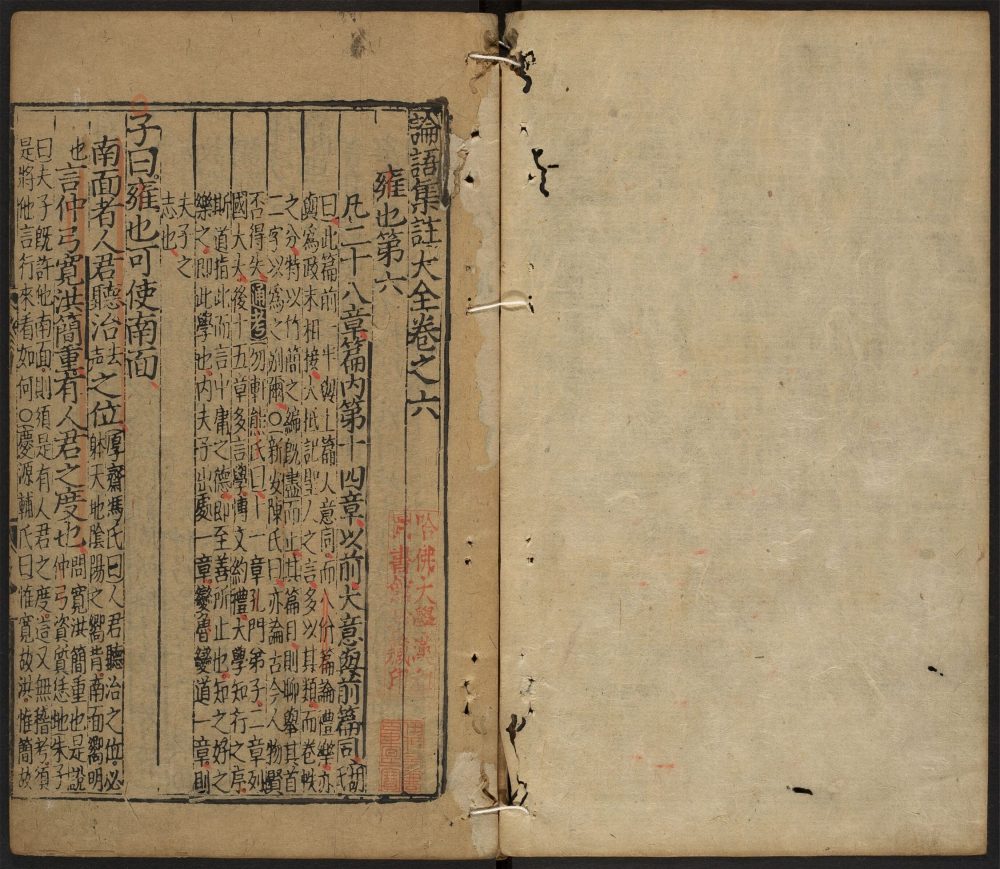 論語集註大全卷之六
雍也第六
凡二十八章篇内第十四章以前大意與前篇同胡氏
曰此篇前一半與上篇人意同而八佾篇論禮樂亦
與為政末相接大抵記聖人之言多以其類而卷帙
之分特以竹簡之編既盡而止其篇目則聊舉其首
二字以為之別爾○新安陳氏曰亦論古今人物賢
否得失通考勿軒熊氏曰十一章孔門弟子二章列
國大夫後十五章多言學博文約禮大學知行之序
斯道指此而言中庸之德即至善所止也知之好之
樂之即此學也内夫子出處一章變魯變道一章則
夫子之
志也
子曰雍也可使南面
南面者人君聽治去聲之位厚齋馮氏曰人君聽治之位必躰天地陰陽之嚮背南面嚮明
也言仲弓寛洪簡重有人君之度也問寛洪簡重也是說仲弓資質恁地朱子
曰夫子既許他南面則須是有人君之度這又無稽考須
是將他言行來看如何○慶源輔氏曰惟寛故洪惟簡故
哈佛大學漢和
圖書館珍藏印